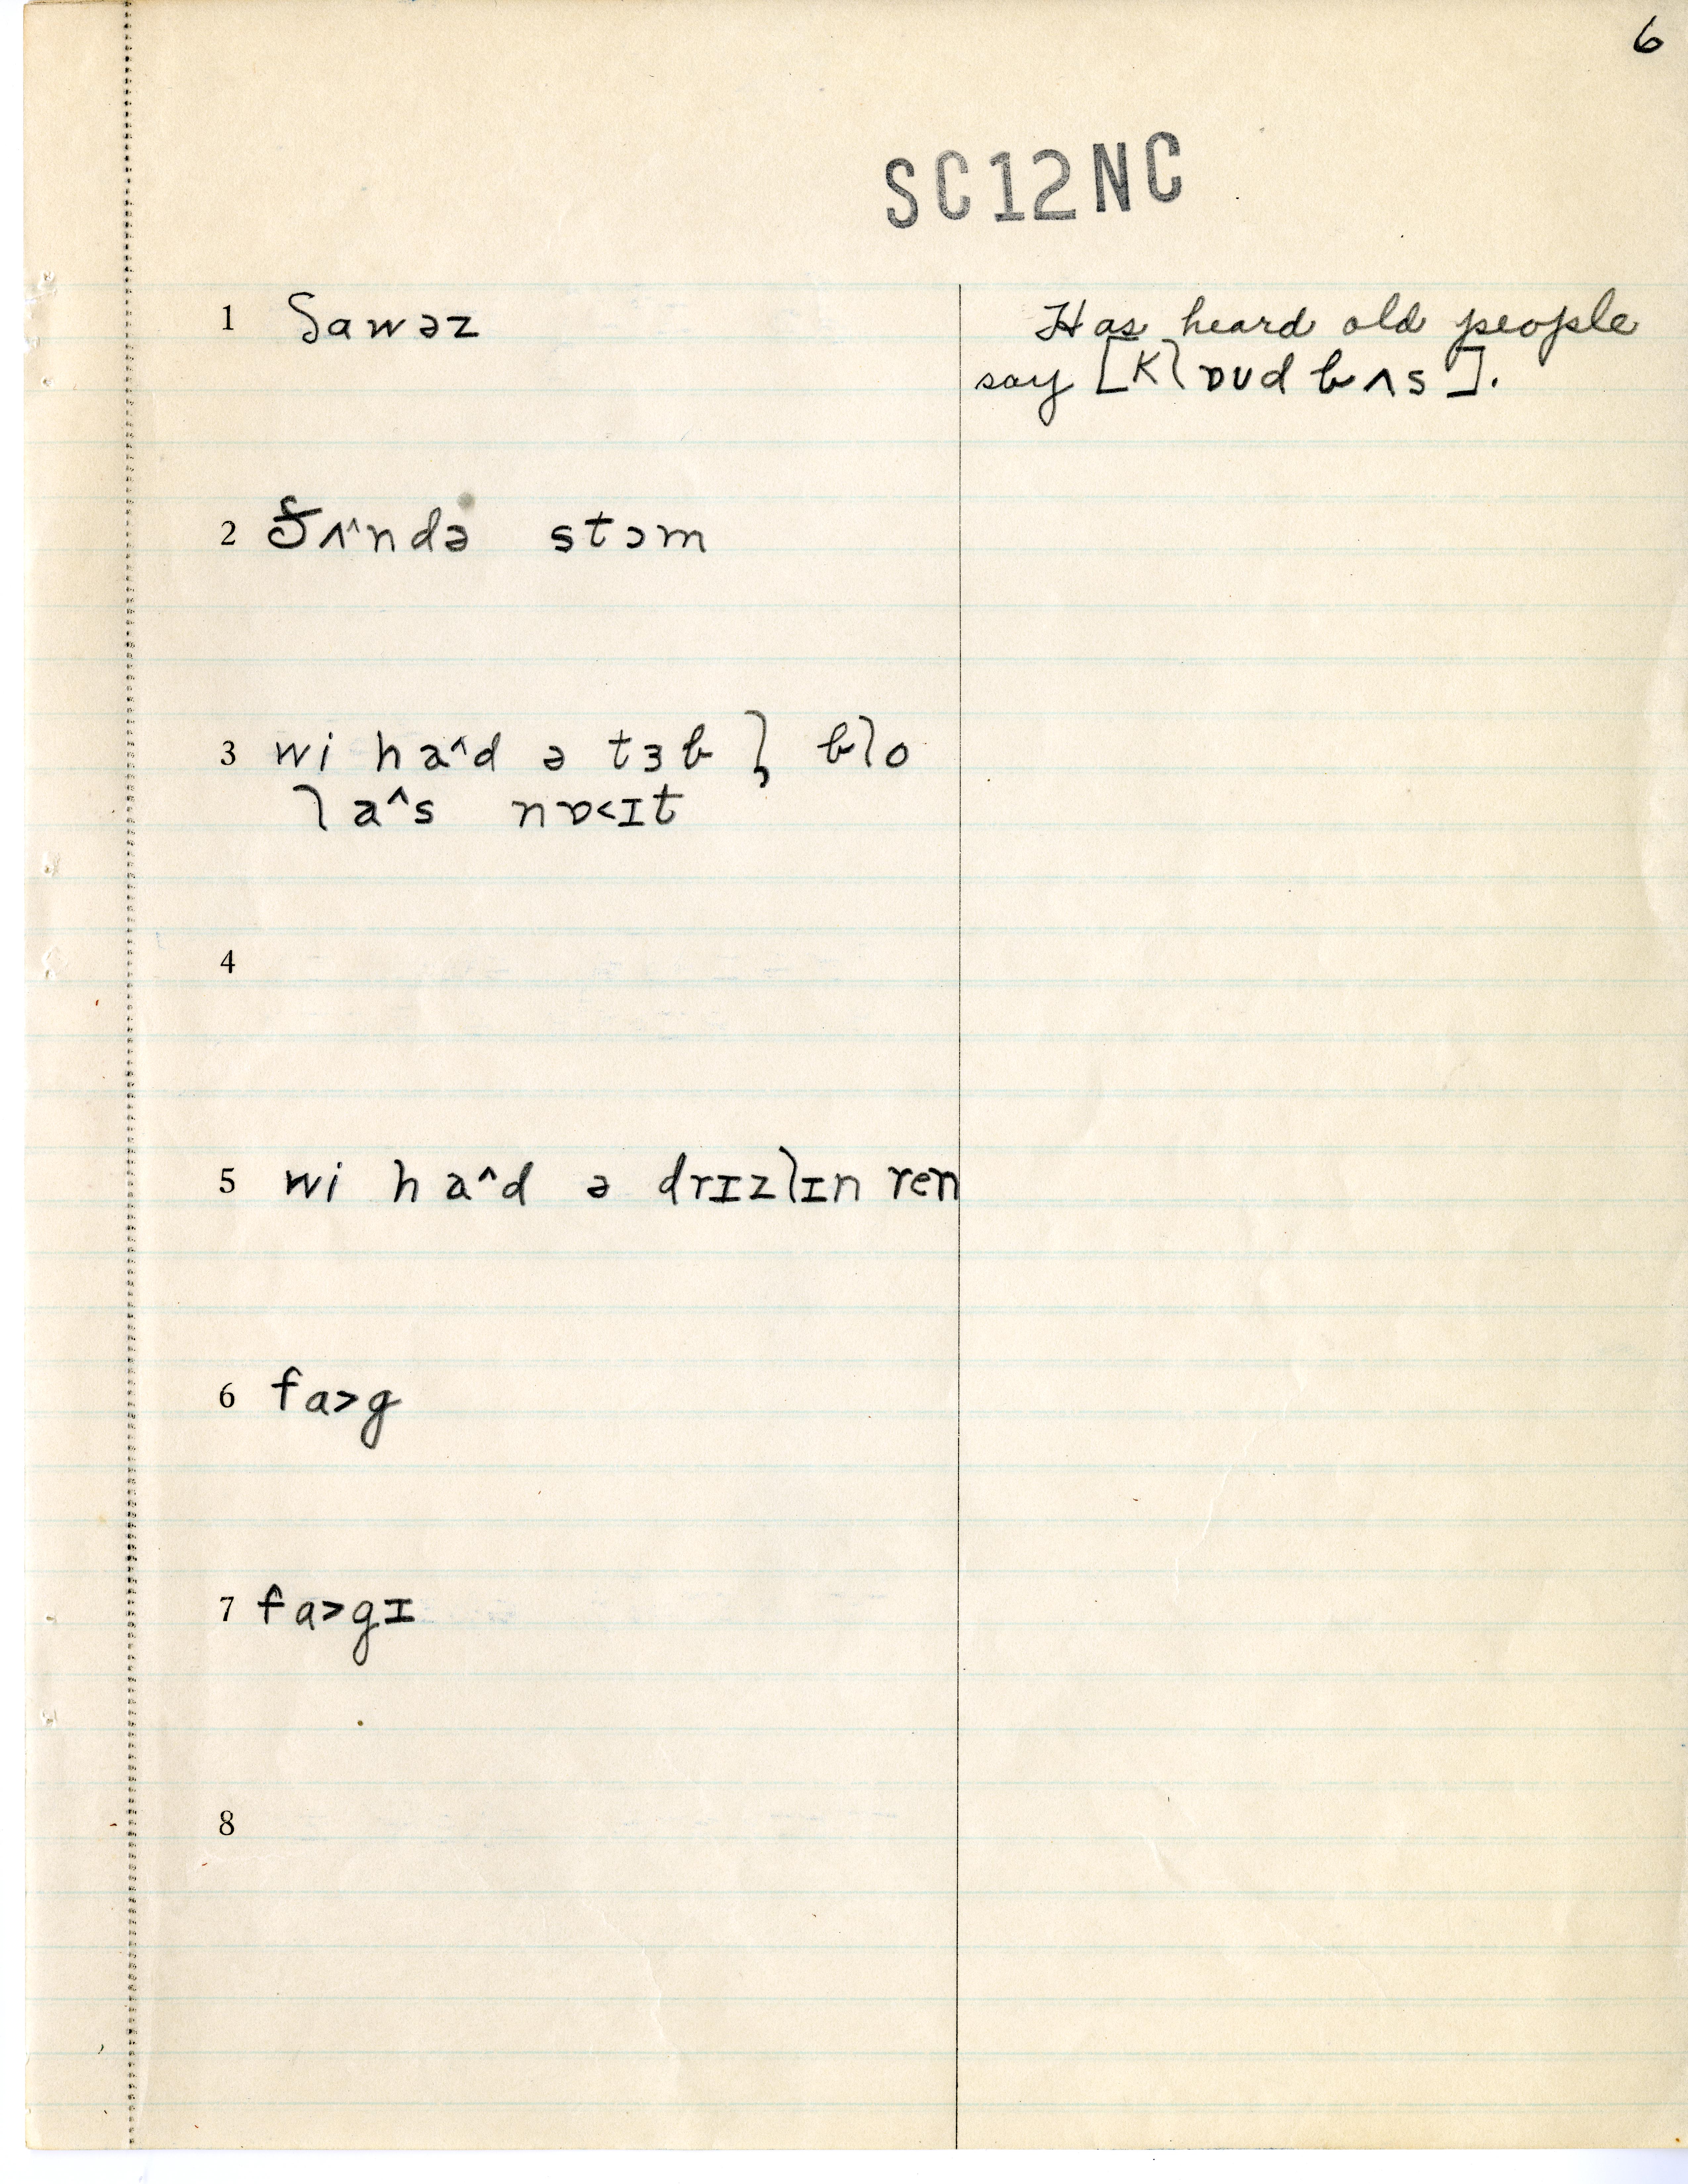 6
SC12NC
1 ʃawəz
Has heard old people
say [klɒʊd bʌs].
2 θʌ^ndə stɔm
3 wi ha^d ə tɜbl̩ blo
la^s nɒ<ɪt
4
5 wi ha^d ə drɪzlɪn ren
6 fa>g
7 fa>gɪ
8